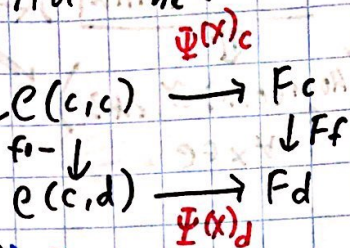 Ψ(x)_c
𝒞(c,c) ⟶ Fc
f∘- ↓ ↓ Ff
𝒞(c,d) ⟶ Fd
Ψ(x)_d